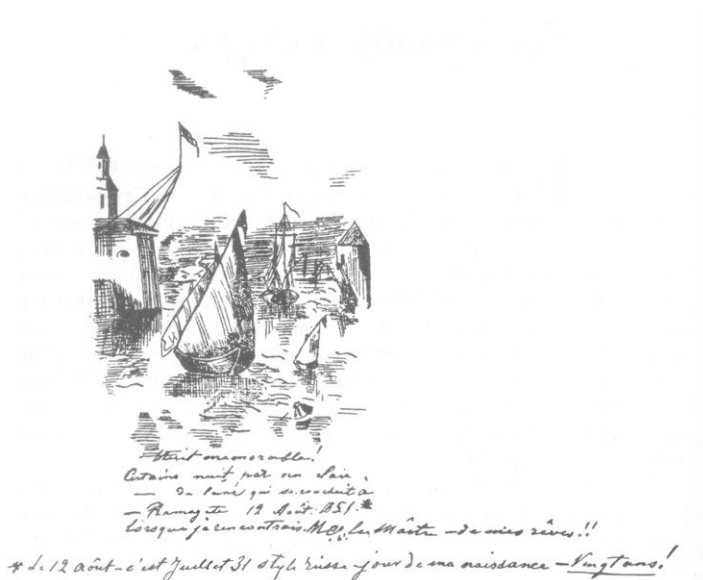 Nuit memorable!
Certaine nuit par un clair
— de lune qui se couchait à
— Ramsgate 12 Août. 1851.*
lorsque je rencontrais M∴ le Maître — de mes rêves!!
* Le 12 août - c'est Juillet 31 style russe - jour de ma naissance — Vingt ans!